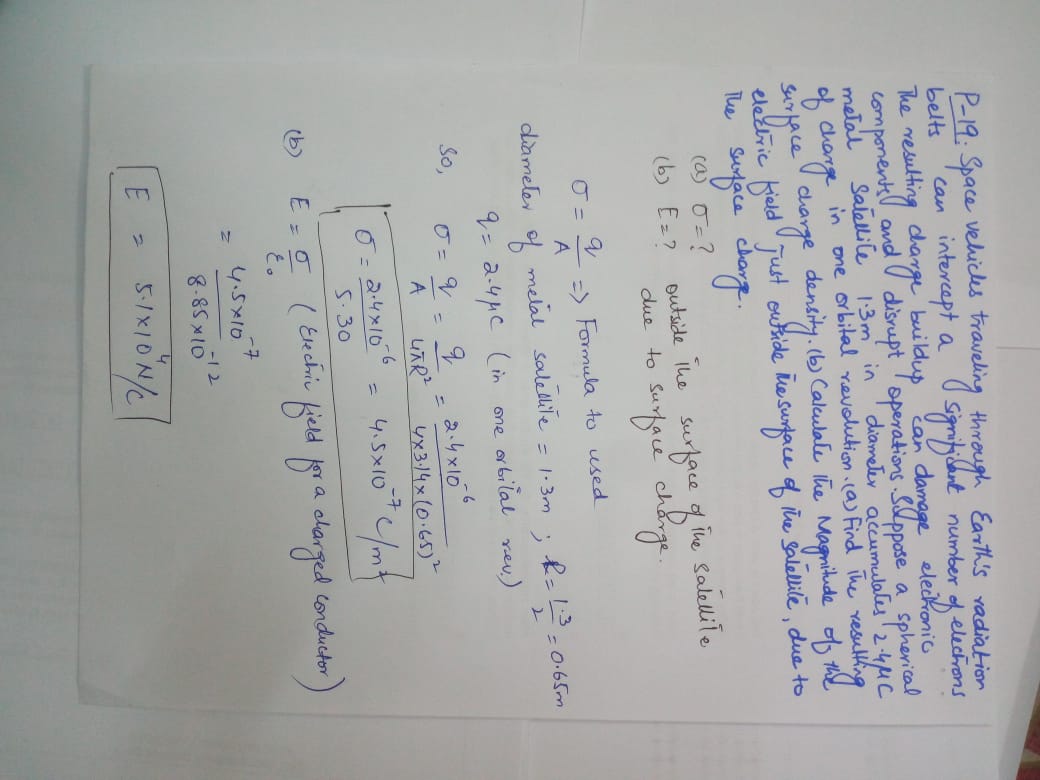 P-19: Space vehicles traveling through Earth's radiation
belts can intercept a significant number of electrons
The resulting charge buildup can damage electronic
components and disrupt operations. Suppose a spherical
metal satellite 1.3m in diameter accumulates 2.4μC
of charge in one orbital revolution. (a) Find the resulting
surface charge density. (b) Calculate the Magnitude of the
electric field just outside the surface of the satellite, due to
The surface charge.
(a) σ = ?
(b) E = ? outside the surface of the satellite
due to surface charge.
σ = q/A => Formula to used
diameter of metal satellite = 1.3m ; R = 1.3/2 = 0.65m
q = 2.4μC (in one orbital rev.)
So, σ = q/A = q/4πR² = 2.4×10⁻⁶/4×3.14×(0.65)²
σ = 2.4×10⁻⁶/5.30 = 4.5×10⁻⁷ C/m²
(b) E = σ/ε₀ (Electric field for a charged conductor)
= 4.5×10⁻⁷/8.85×10⁻¹²
E = 5.1×10⁴ N/C